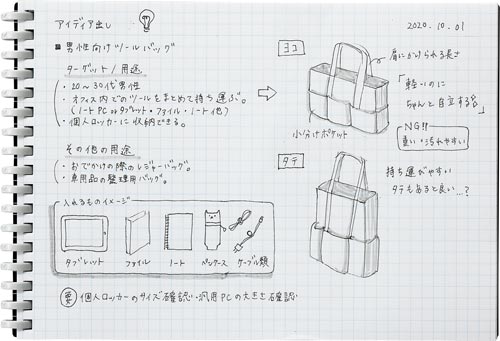 アイディア出し
2020.10.01
■男性向けツールバッグ
ターゲット/用途
・20~30代男性
・オフィス内でのツールをまとめて持ち運ぶ。
(ノートPC orタブレット・ファイル・ノート他)
・個人ロッカーに収納できる。
その他の用途
・おでかけの際のレジャーバッグ。
・車用品の整理用バッグ。
入れるものイメージ
タブレット
ファイル
ノート
ペンケース
ケーブル類
要 個人ロッカーのサイズ確認・汎用PCの大きさ確認
ヨコ
肩にかけられる長さ
「軽いのに
ちゃんと自立する」
NG!!
重い・汚れやすい
小分けポケット
タテ
持ち運びやすい
タテもあると良い…?